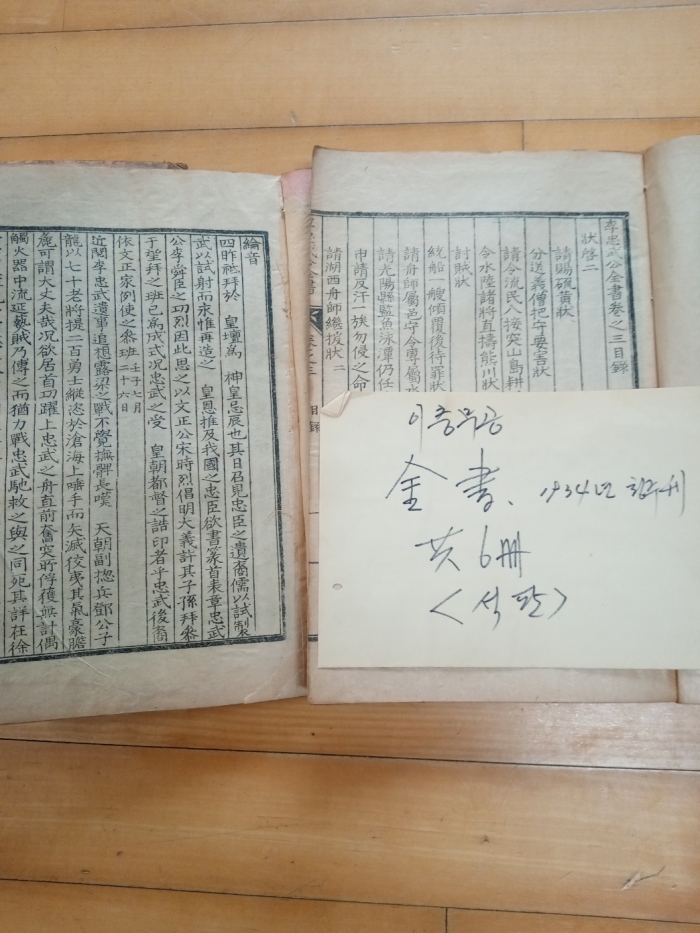 李忠武公全書卷之三目錄
狀啓二
請賜硫黃狀
分送義僧把守要害狀
請令流民入接突山島耕
令水陸諸將直擣熊川狀
討賊狀
統船一艘傾覆後待罪狀
請舟師屬邑守令專屬水
請光陽縣監魚泳潭仍任
申請反汗一族勿侵之命
請湖西舟師繼援狀 二
卷之三 目錄
綸音
四昨祗拜於 皇壇爲 神皇忌辰也其日召見忠臣之遺裔儒以試製
武以試射而永惟再造之 皇恩推及我國之忠臣欲書篆首表章忠武
公李舜臣之功烈因此思之以文正公宋時烈倡明大義許其子孫拜參
于望拜之班已爲成式况忠武之受 皇朝都督之誥印者乎忠武後裔
依文正家例使之參班 壬子七月二十六日
近閱李忠武遺事追想露梁之戰不覺撫髀長嘆 天朝副摠兵鄧公子
龍以七十老將提二百勇士縱恣於滄海上唾手而矢滅狡夷其氣豪膽
麄可謂大丈夫哉况欲居首功躍上忠武之舟直前奮突所俘獲無計偶
觸火器中流延爇賊乃傳之而猶力戰忠武馳救之與之同死其詳在徐
이충무공
全書、1934년 刊
共6冊
<석판>